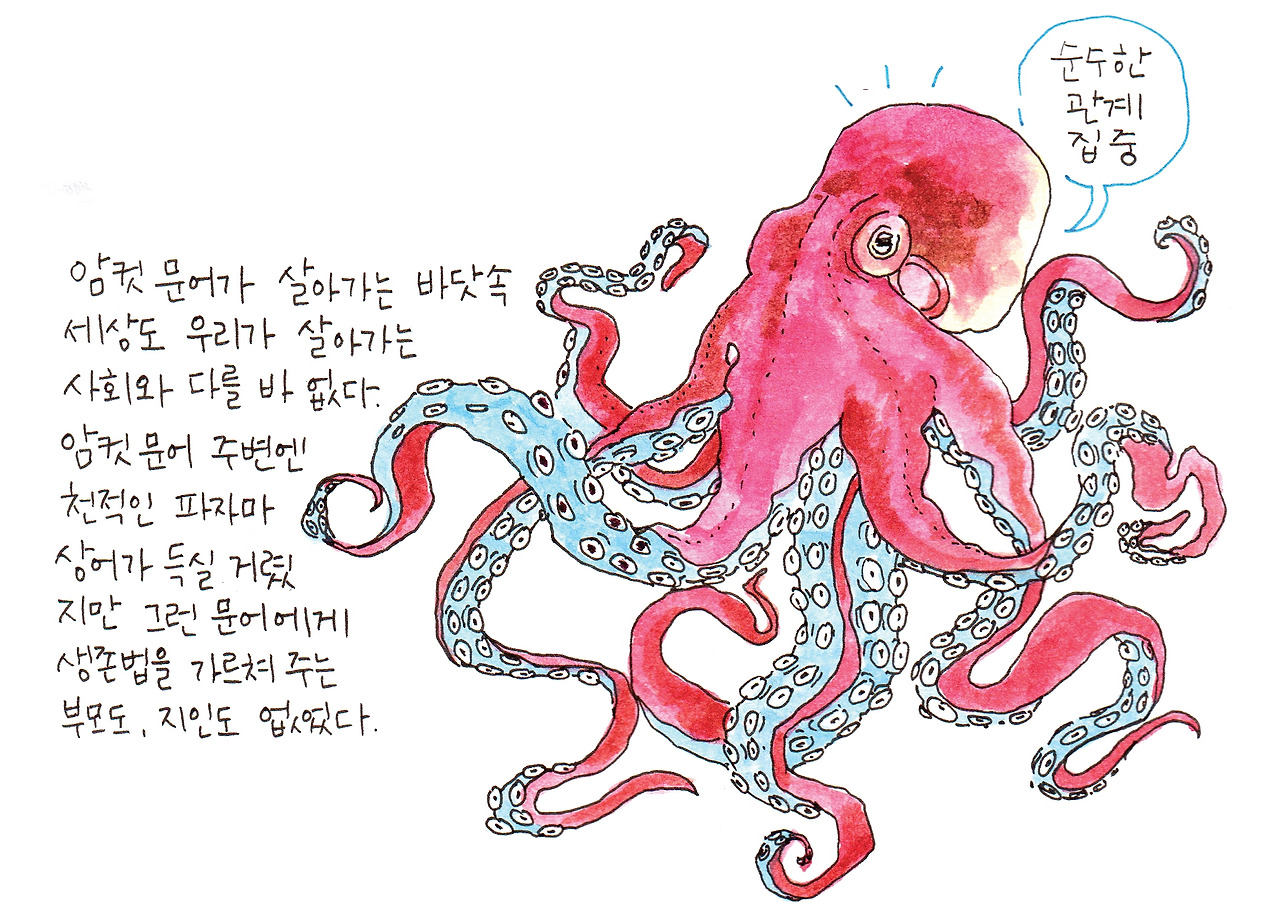 암컷 문어가 살아가는 바닷속
세상도 우리가 살아가는
사회와 다를 바 없다.
암컷 문어 주변엔
천적인 파자마
상어가 득실 거렸
지만 그런 문어에게
생존법을 가르쳐 주는
부모도, 지인도 없었다.
순수한
관계
집중